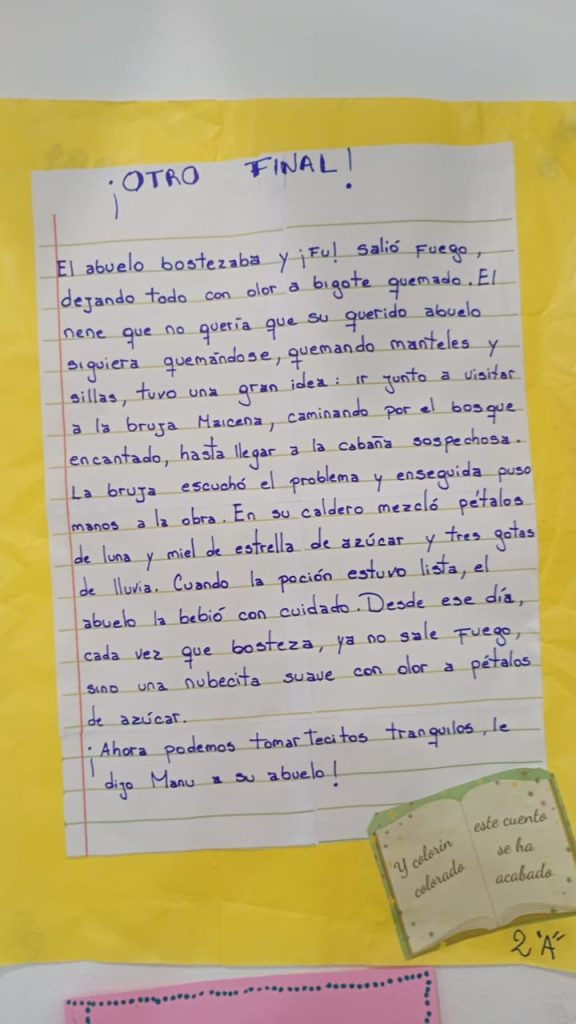 ¡OTRO FINAL!
El abuelo bostezaba y ¡Fu! salió Fuego,
dejando todo con olor a bigote quemado. El
nene que no quería que su querido abuelo
siguiera quemándose, quemando manteles y
sillas, tuvo una gran idea: ir junto a visitar
a la bruja Maicena, caminando por el bosque
encantado, hasta llegar a la cabaña sospechosa.
La bruja escuchó el problema y enseguida puso
manos a la obra. En su caldero mezcló pétalos
de luna y miel de estrella de azúcar y tres gotas
de lluvia. Cuando la poción estuvo lista, el
abuelo la bebió con cuidado. Desde ese día,
cada vez que bosteza, ya no sale Fuego,
sino una nubecita suave con olor a pétalos
de azúcar.
¡Ahora podemos tomar Tecitos tranquilos, le
dijo Manu a su abuelo!
Y colorin
colorado
este cuento
se ha
acabado
2 "A"